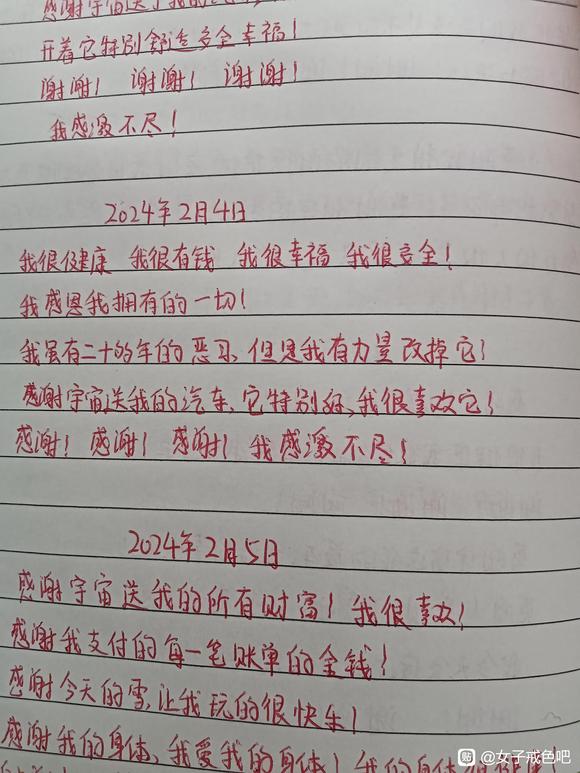 感谢宇宙送了我的
开着它特别舒适安全幸福！
谢谢！ 谢谢！ 谢谢！
我感激不尽！
2024年2月4日
我很健康 我很有钱 我很幸福 我很安全！
我感恩我拥有的一切！
我虽有二十多年的恶习，但是我有力量改掉它！
感谢宇宙送我的汽车，它特别好，我很喜欢它！
感谢！ 感谢！ 感谢！ 我感激不尽！
2024年2月5日
感谢宇宙送我的所有财富！ 我很喜欢！
感谢我支付的每一笔账单的金钱！
感谢今天的雪，让我玩的很快乐！
感谢我的身体，我爱我的身体！我的身体
贴 @女子戒色吧